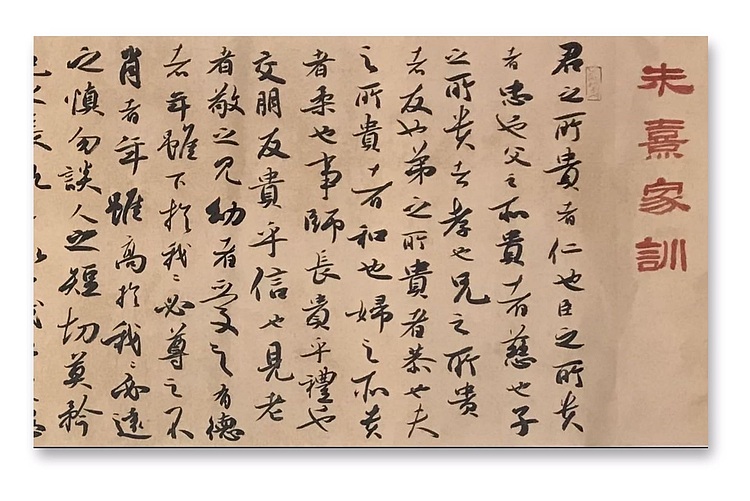 朱熹家訓
君之所貴者仁也臣之所貴
者忠也父之所貴者慈也子
之所貴者孝也兄之所貴
者友也弟之所貴者恭也夫
之所貴者和也婦之所貴
者柔也事師長貴乎禮也
交朋友貴乎信也見老
者敬之見幼者愛之有德
者年雖下於我〻必尊之不
肖者年雖高於我〻必遠
之慎勿談人之短切莫矜